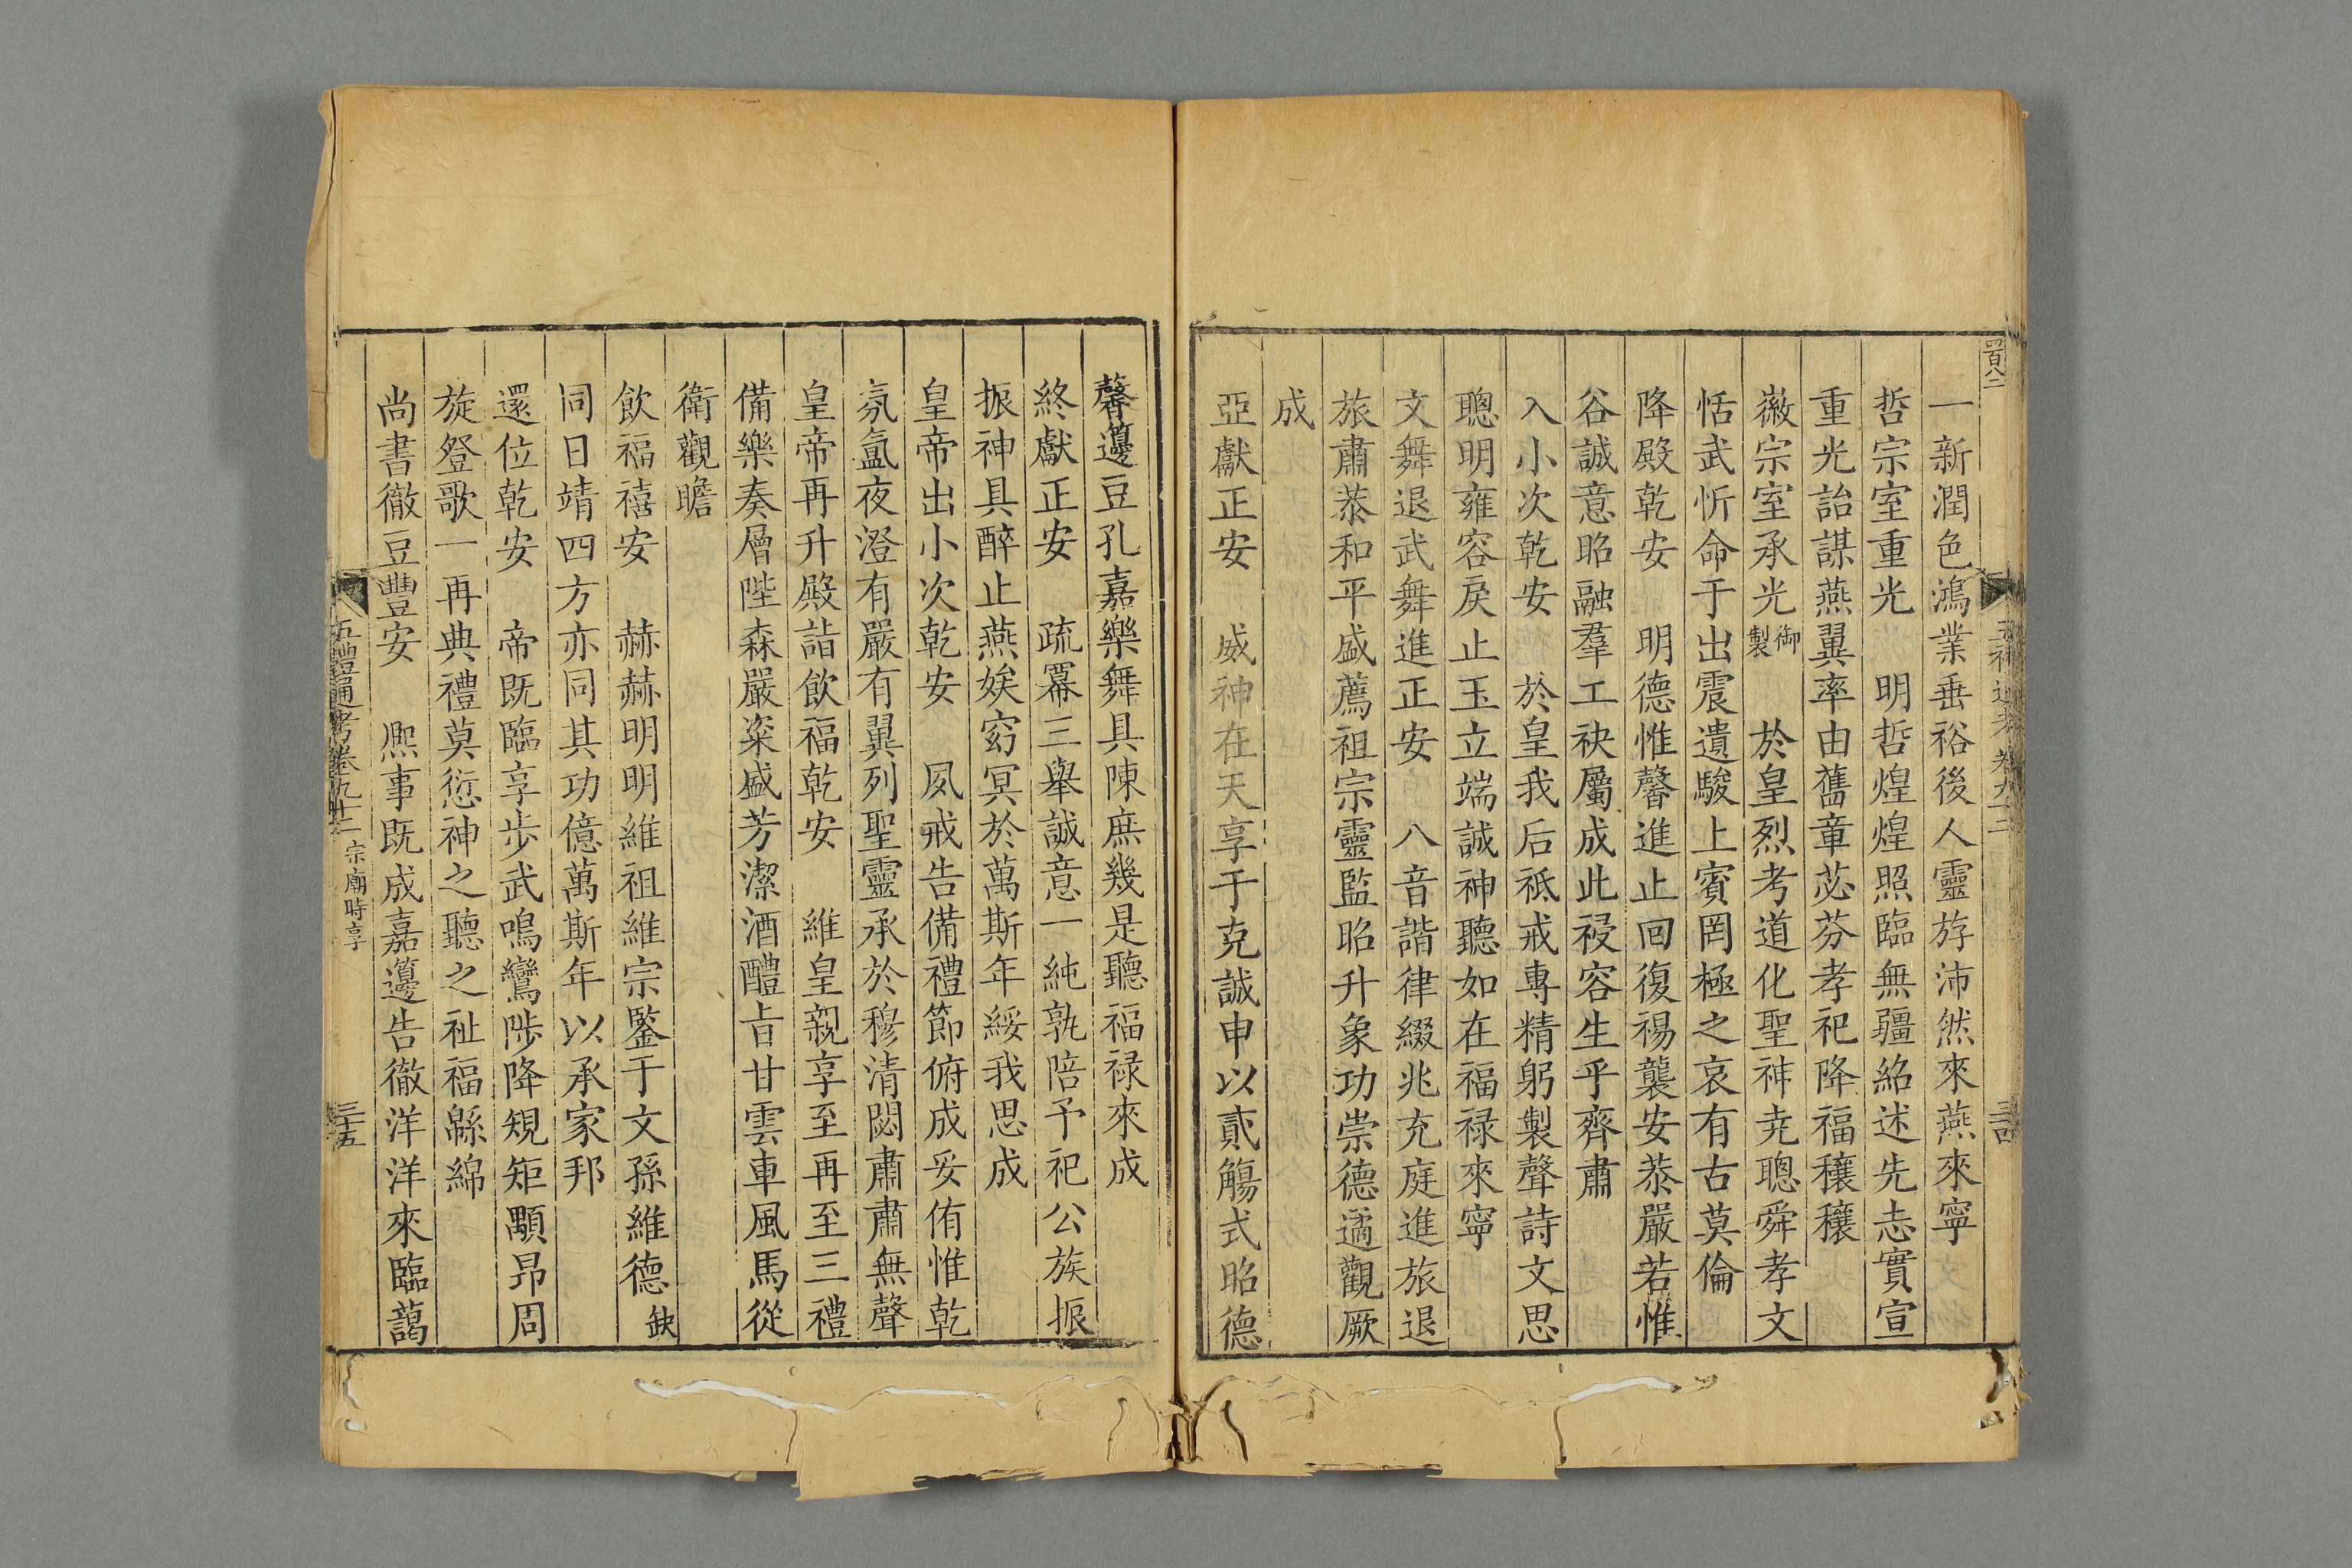 一新潤色鴻業垂裕後人靈斿沛然來燕來寧
哲宗室重光　明哲煌煌照臨無疆紹述先志實宣
重光詒謀燕翼率由舊章苾芬孝祀降福穰穰
徽宗室承光御製　於皇烈考道化聖神堯聰舜孝文
恬武忻命于出震遺駿上賓罔極之哀有古莫倫
降殿乾安　明德惟馨進止回復裼襲安恭嚴若惟
谷誠意昭融羣工袂屬成此祲容生乎齊肅
入小次乾安　於皇我后祗戒專精躬製聲詩文思
聰明雍容戾止玉立端誠神聽如在福祿來寧
文舞退武舞進正安　八音諧律綴兆充庭進旅退
旅肅恭和平盛薦祖宗靈監昭升象功崇德遹觀厥
成
亞獻正安　威神在天享于克誠申以貳觴式昭德
馨籩豆孔嘉樂舞具陳庶幾是聽福祿來成
終獻正安　疏冪三舉誠意一純孰陪予祀公族振
振神具醉止燕娭窈冥於萬斯年綏我思成
皇帝出小次乾安　夙戒告備禮節俯成妥侑惟乾
氛氳夜澄有嚴有翼列聖靈承於穆清閟肅肅無聲
皇帝再升殿詣飲福乾安　維皇親享至再至三禮
備樂奏層陛森嚴粢盛芳潔酒醴旨甘雲車風馬從
衛觀瞻
飲福禧安　赫赫明明維祖維宗鑒于文孫維德缺
同日靖四方亦同其功億萬斯年以承家邦
還位乾安　帝既臨享步武鳴鸞陟降規矩顒昂周
旋登歌一再典禮莫愆神之聽之祉福緜綿
尚書徹豆豐安　熈事既成嘉籩告徹洋洋來臨藹
五禮通考卷九十二　宗廟時享　三十五